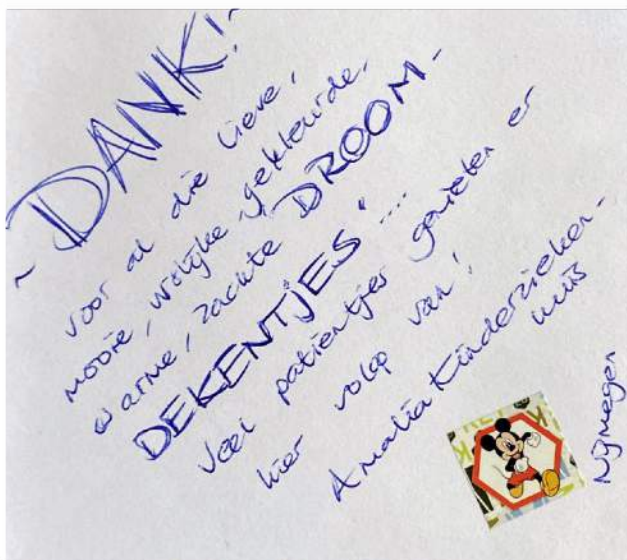 ~ DANK! ~
voor al die lieve,
mooie, vrolijke, gekleurde,
warme, zachte DROOM-
DEKENTJES"...
Veel patientjes genieten er
hier volop van!
Amalia Kinderzieken-
huis
Nijmegen